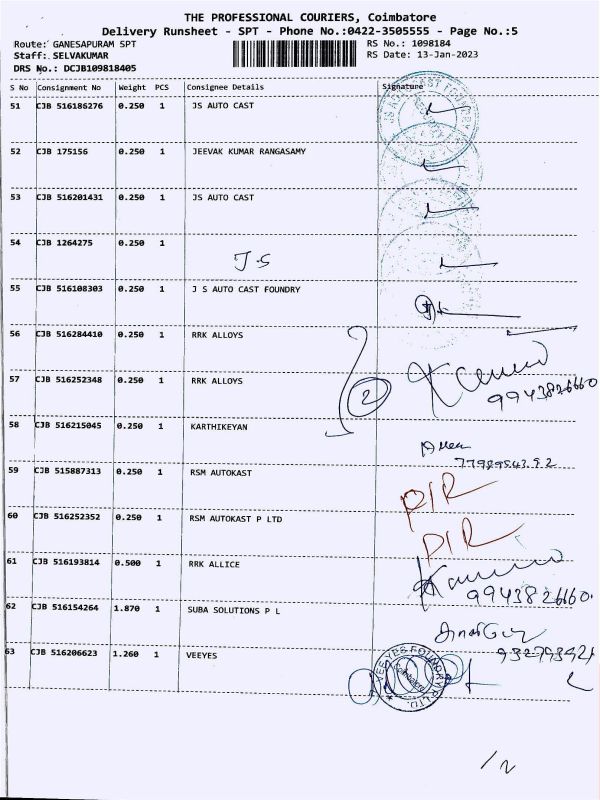 THE PROFESSIONAL COURIERS, Coimbatore
Delivery Runsheet - SPT - Phone No.:0422-3505555 - Page No.:5
Route: GANESAPURAM SPT RS No.: 1098184
Staff: SELVAKUMAR RS Date: 13-Jan-2023
DRS No.: DCJB109818405
S No Consignment No Weight PCS Consignee Details Signature
51 CJB 516186276 0.250 1 JS AUTO CAST
52 CJB 175156 0.250 1 JEEVAK KUMAR RANGASAMY
53 CJB 516201431 0.250 1 JS AUTO CAST
54 CJB 1264275 0.250 1 J.S
55 CJB 516108303 0.250 1 J S AUTO CAST FOUNDRY
56 CJB 516284410 0.250 1 RRK ALLOYS
57 CJB 516252348 0.250 1 RRK ALLOYS 2
9943826660
58 CJB 516215045 0.250 1 KARTHIKEYAN
59 CJB 515887313 0.250 1 RSM AUTOKAST D/R
60 CJB 516252352 0.250 1 RSM AUTOKAST P LTD D/R
61 CJB 516193814 0.500 1 RRK ALLICE
9943826660.
62 CJB 516154264 1.870 1 SUBA SOLUTIONS P L
63 CJB 516206623 1.260 1 VEEYES
VEEYES FOUNDRY P LTD. Coimbatore
/2